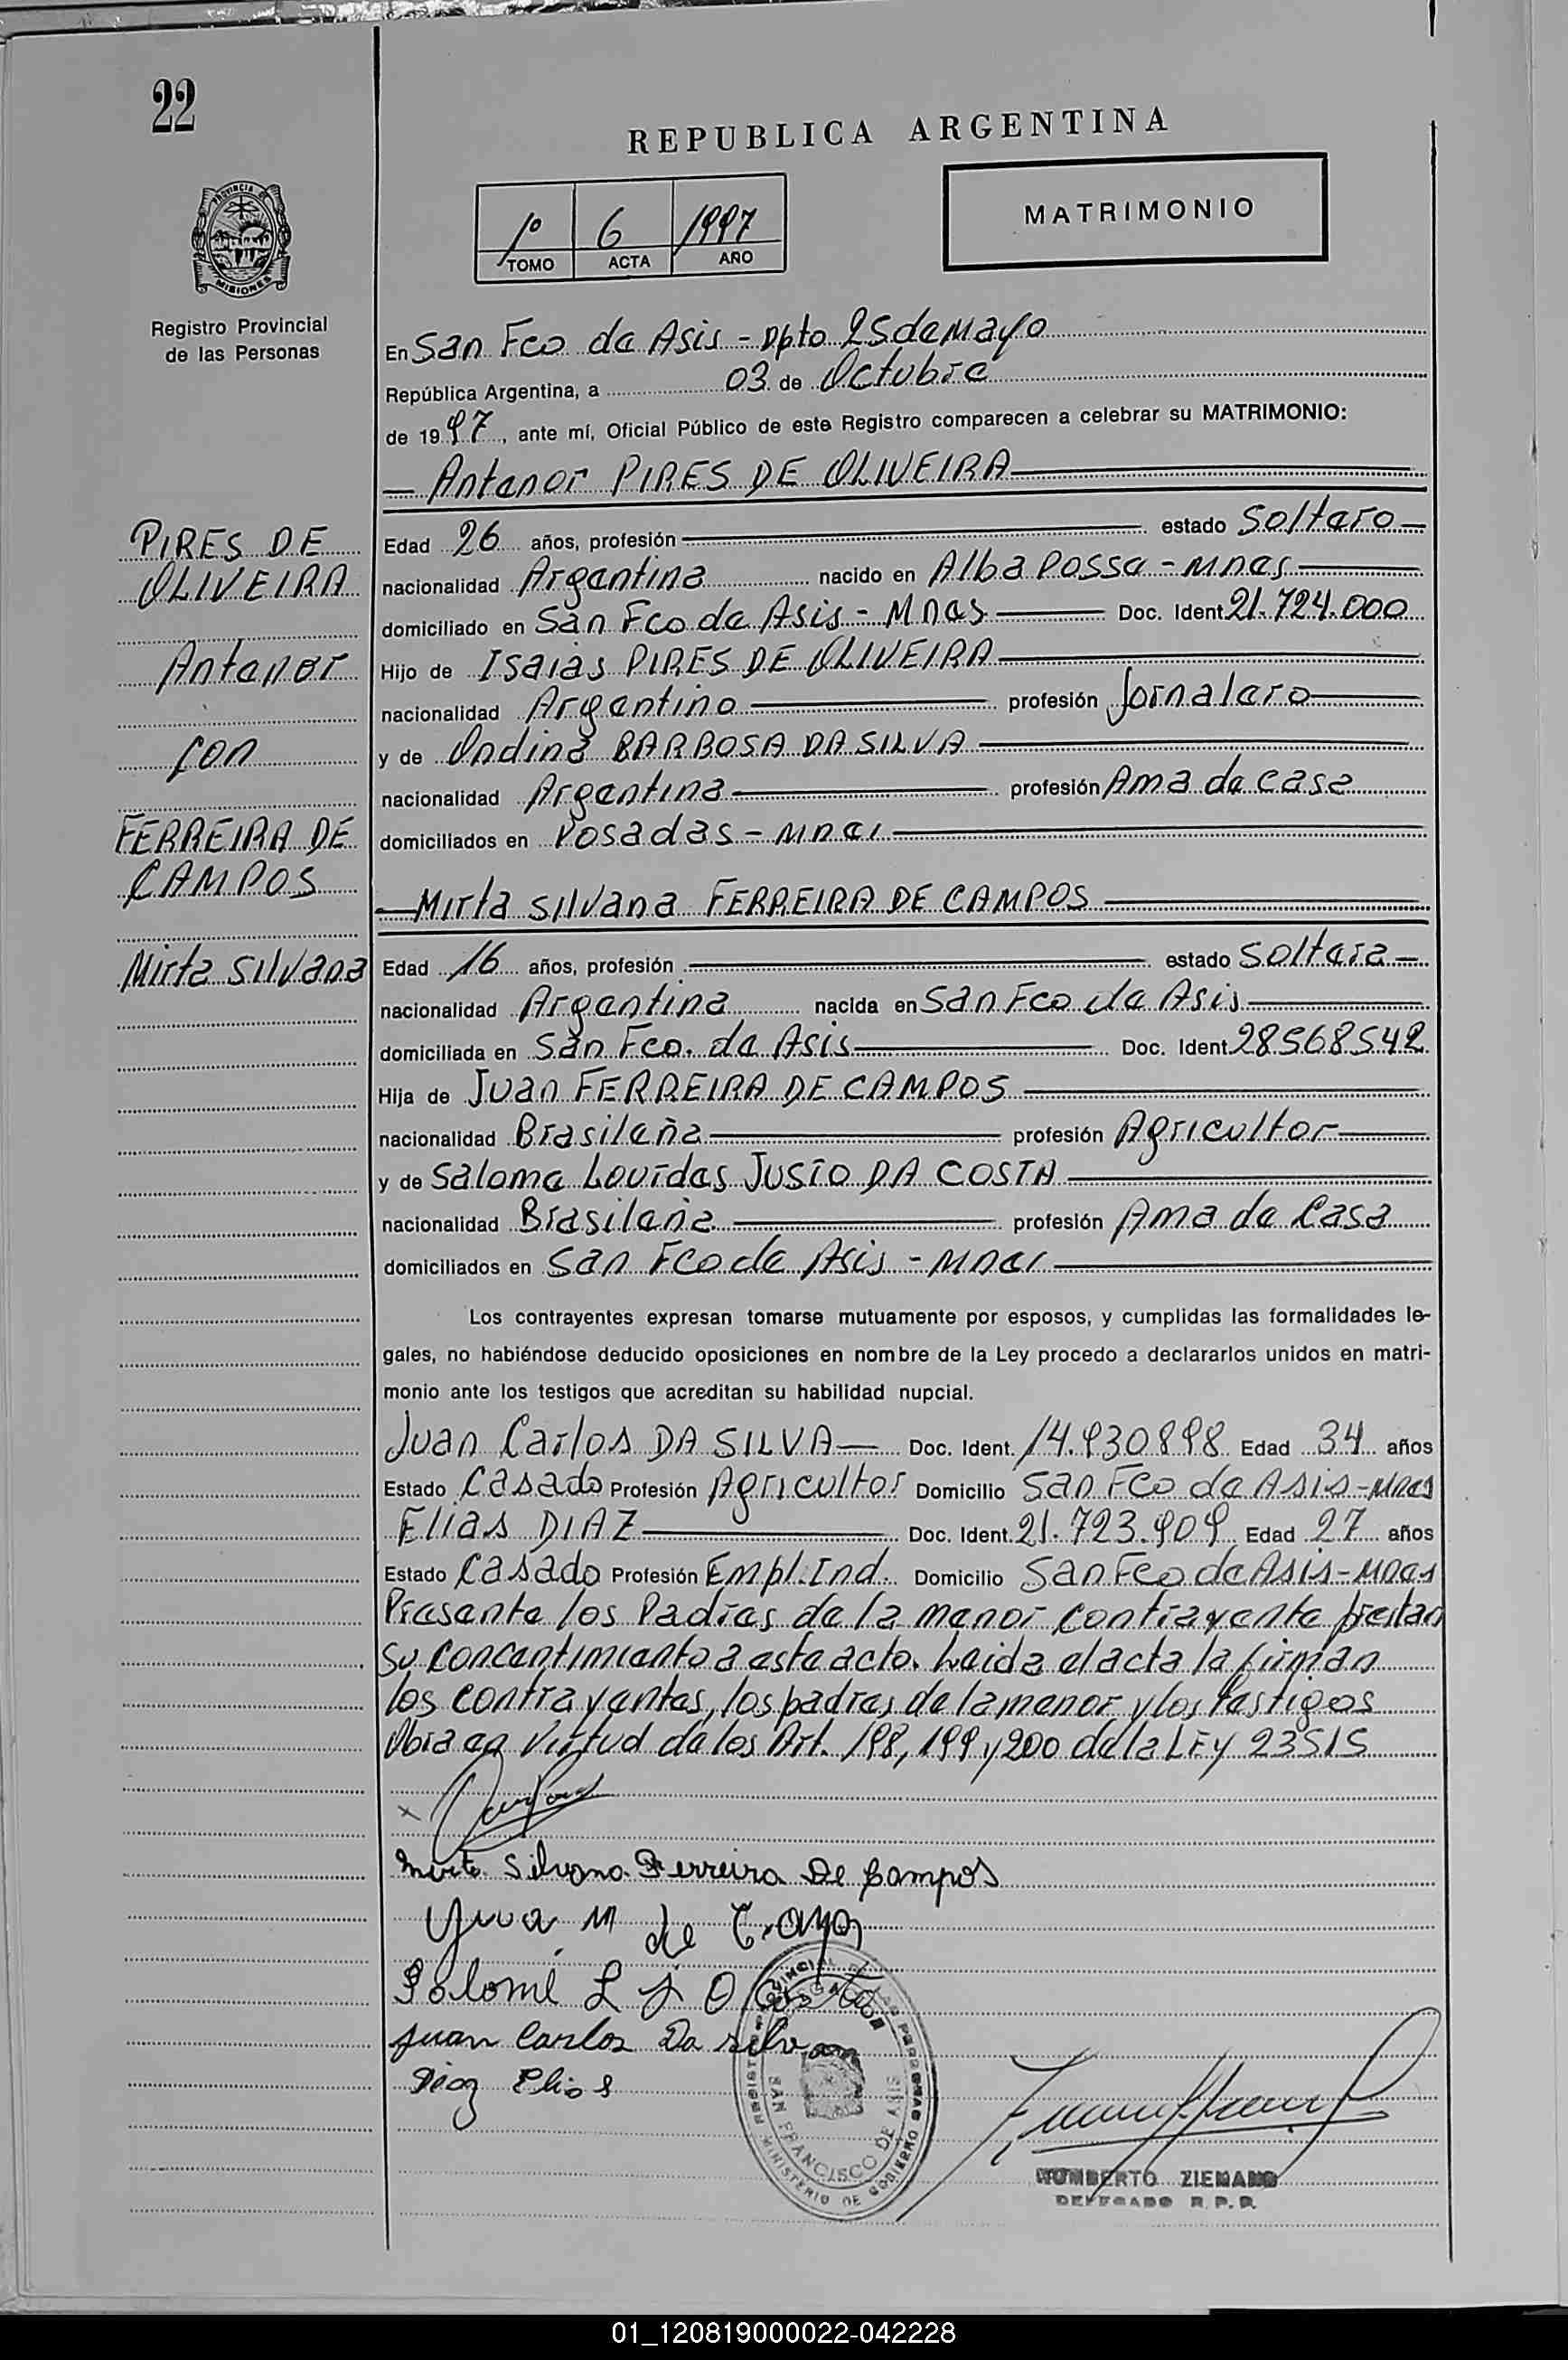 22
REPUBLICA ARGENTINA
PROVINCIA DE
MISIONES
1º 6 1997
TOMO ACTA AÑO
MATRIMONIO
Registro Provincial
de las Personas
En San Fco de Asis - Dpto 25 de Mayo
República Argentina, a 03 de Octubre
de 1997, ante mí, Oficial Público de este Registro comparecen a celebrar su MATRIMONIO:
— Antenor PIRES DE OLIVEIRA
PIRES DE
OLIVEIRA
Antenor
con
FERREIRA DE
CAMPOS
Mirta Silvana
Edad 26 años, profesión estado Soltero —
nacionalidad Argentina nacido en Alba Posse - Mnes
domiciliado en San Fco de Asis - Mnes Doc. Ident 21.724.000
Hijo de Isaias PIRES DE OLIVEIRA
nacionalidad Argentino profesión Jornalero
y de Ondina BARBOSA DA SILVA
nacionalidad Argentina profesión Ama de casa
domiciliados en Posadas - Mnes
— Mirta Silvana FERREIRA DE CAMPOS
Edad 16 años, profesión estado Soltera —
nacionalidad Argentina nacida en San Fco de Asis
domiciliada en San Fco. de Asis Doc. Ident 28568542
Hija de Juan FERREIRA DE CAMPOS
nacionalidad Brasileña profesión Agricultor
y de Salome Lourdes JUSTO DA COSTA
nacionalidad Brasileña profesión Ama de Casa
domiciliados en San Fco de Asis - Mnes
Los contrayentes expresan tomarse mutuamente por esposos, y cumplidas las formalidades le-
gales, no habiéndose deducido oposiciones en nombre de la Ley procedo a declararlos unidos en matri-
monio ante los testigos que acreditan su habilidad nupcial.
Juan Carlos DA SILVA — Doc. Ident. 14.930898 Edad 34 años
Estado Casado Profesión Agricultor Domicilio San Fco de Asis - Mnes
Elias DIAZ Doc. Ident. 21.723.909 Edad 27 años
Estado Casado Profesión Empl. Ind. Domicilio San Fco de Asis - Mnes
Presente los Padres de la menor contrayente prestan
su concentimiento a este acto. Leida el acta la firman
los contrayentes, los padres de la menor y los testigos
Obra en virtud de los Art. 198, 199 y 200 de la LEy 23515
Mirta Silvana Ferreira De Campos
Salomé L J D Costa
Juan Carlos Da silva
Diaz Elias
SAN FRANCISCO DE ASIS
MINISTERIO DE GOBIERNO
HUMBERTO ZIEMANN
DELEGADO R. P. P.
01_120819000022-042228